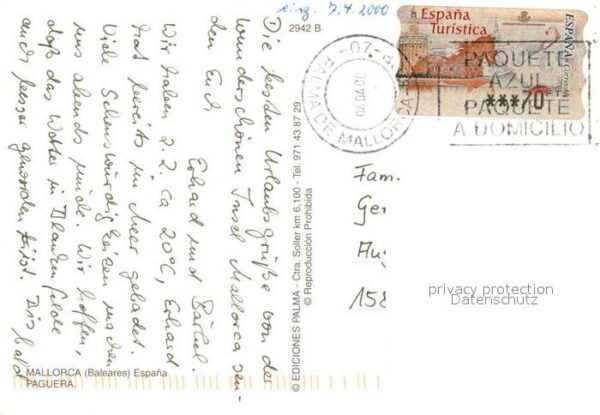 eing. 7.4.2000
2942 B
España
Turística
ESPAÑA
Correos
****70
07
PALMA DE MALLORCA
04.04.00
PAQUETE
AZUL
PAQUETE
A DOMICILIO
Die besten Urlaubsgrüße von der
wunderschönen Insel Mallorca sen-
den Euch
Erhard und Bärbel.
Wir haben z.Z. ca 20°C, Erhard
hat bereits im Meer gebadet.
Viele Sehenswürdigkeiten machen
uns abends müde. Wir hoffen,
daß das Wetter in Blankenfelde
auch besser geworden ist. Bis bald
© EDICIONES PALMA - Ctra. Soller km 6,100 - Tel. 971 43 87 29
© Reproducción Prohibida
Fam.
Ger
Au
158
privacy protection
Datenschutz
MALLORCA (Baleares) España
PAGUERA.